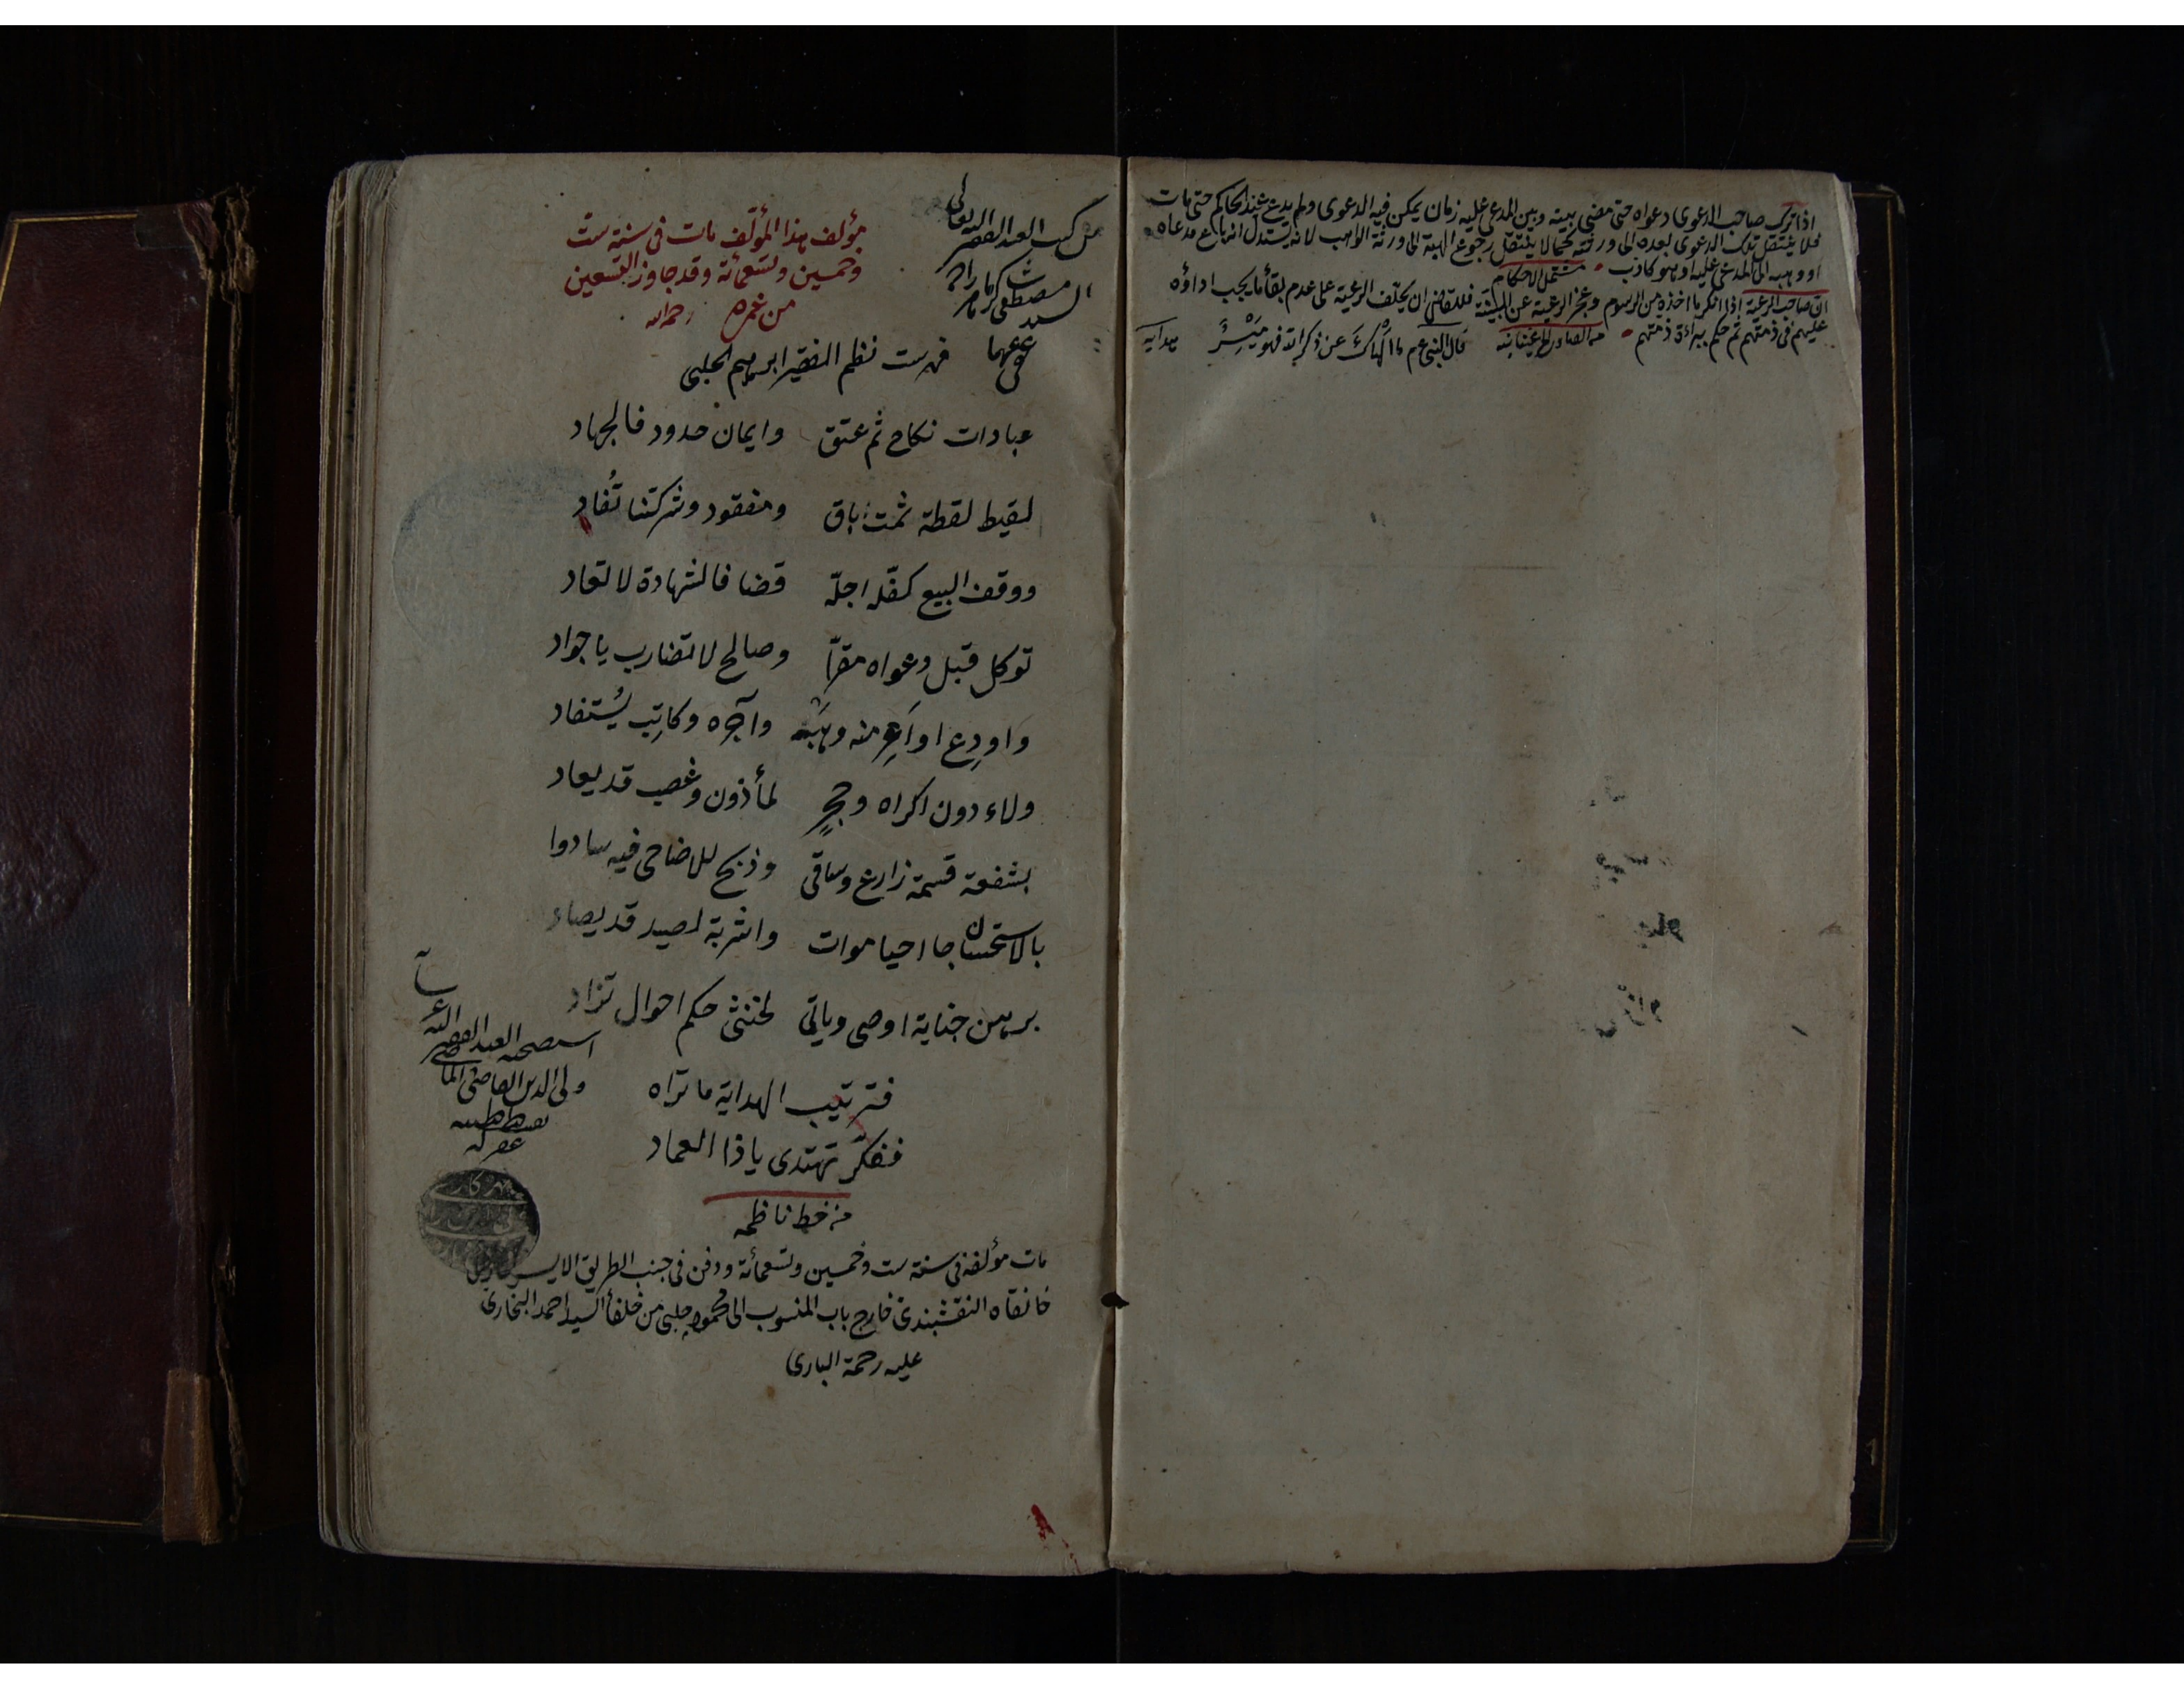 اذا ترك صاحب الدعوى دعواه حتى مضى بينه وبين المدعى عليه زمان يمكن فيه الدعوى ولم يدع عند الحاكم حتى مات
فلا ينتقل تلك الدعوى بعده الى ورثته كما لا ينتقل رجوع الهبة الى ورثة الواهب لانه يستدل انه باع مدعاه
او وهبه الى المدعى عليه او هو كاذب مشتمل الاحكام
ان صاحب الرعية اذا انكر ما اخذه من الرسوم وعجز الرعية عن البينة فللقاضى ان يحلف الرعية على عدم بقأ ما يجب اداؤه
عليهم فى ذمتهم ثم حكم ببراءة ذمتهم قال النبى عم ما الهاك عن ذكر الله فهو ميسر هدايه
من كتب العبد الفقير
السيد مصطفى
عفى عنهما
مؤلف هذا المؤلف مات فى سنة ست
وخمسين وتسعمائة وقد جاوز التسعين
من عمره رحمه الله
فهرست نظم الفقير ابرهيم الحلبى
عبادات نكاح ثم عتق وايمان حدود فالجهاد
لقيط لقطة ثمت اباق ومفقود وشركتنا تُفاد
ووقف البيع كفله اجلّه قضا فالشهادة لا تعاد
توكل قبل دعواه مقرّا وصالح لا تضارب يا جواد
واودِع او اَعِر منه وهَبْه وآجره وكاتِب يُستفاد
ولاء دون اكراه وحجرٍ لمأذون وغصب قد يعاد
بشفعة قسمة زارع وساقى وذبح للاضاحى فيه سادوا
بالاستحسان جا احيا موات واشربة لصيد قد يصاد
برهن جناية اوصى وياتى لخنثى حكم احوال تزاد
فترتيب الهداية ما تراه
ففكّر تهتدى يا ذا العماد
من خط ناظمه
استصحبه العبد الفقير
ولى الدين القاضى
بقسطنطينيه
غفر له
مات مؤلفه فى سنة ست وخمسين وتسعمائة ودفن فى جنب الطريق الايسر
خانقاه النقشبندى خارج باب المنسوب الى محمود چلبى من خلفأ السيد احمد البخارى
عليه رحمة البارى